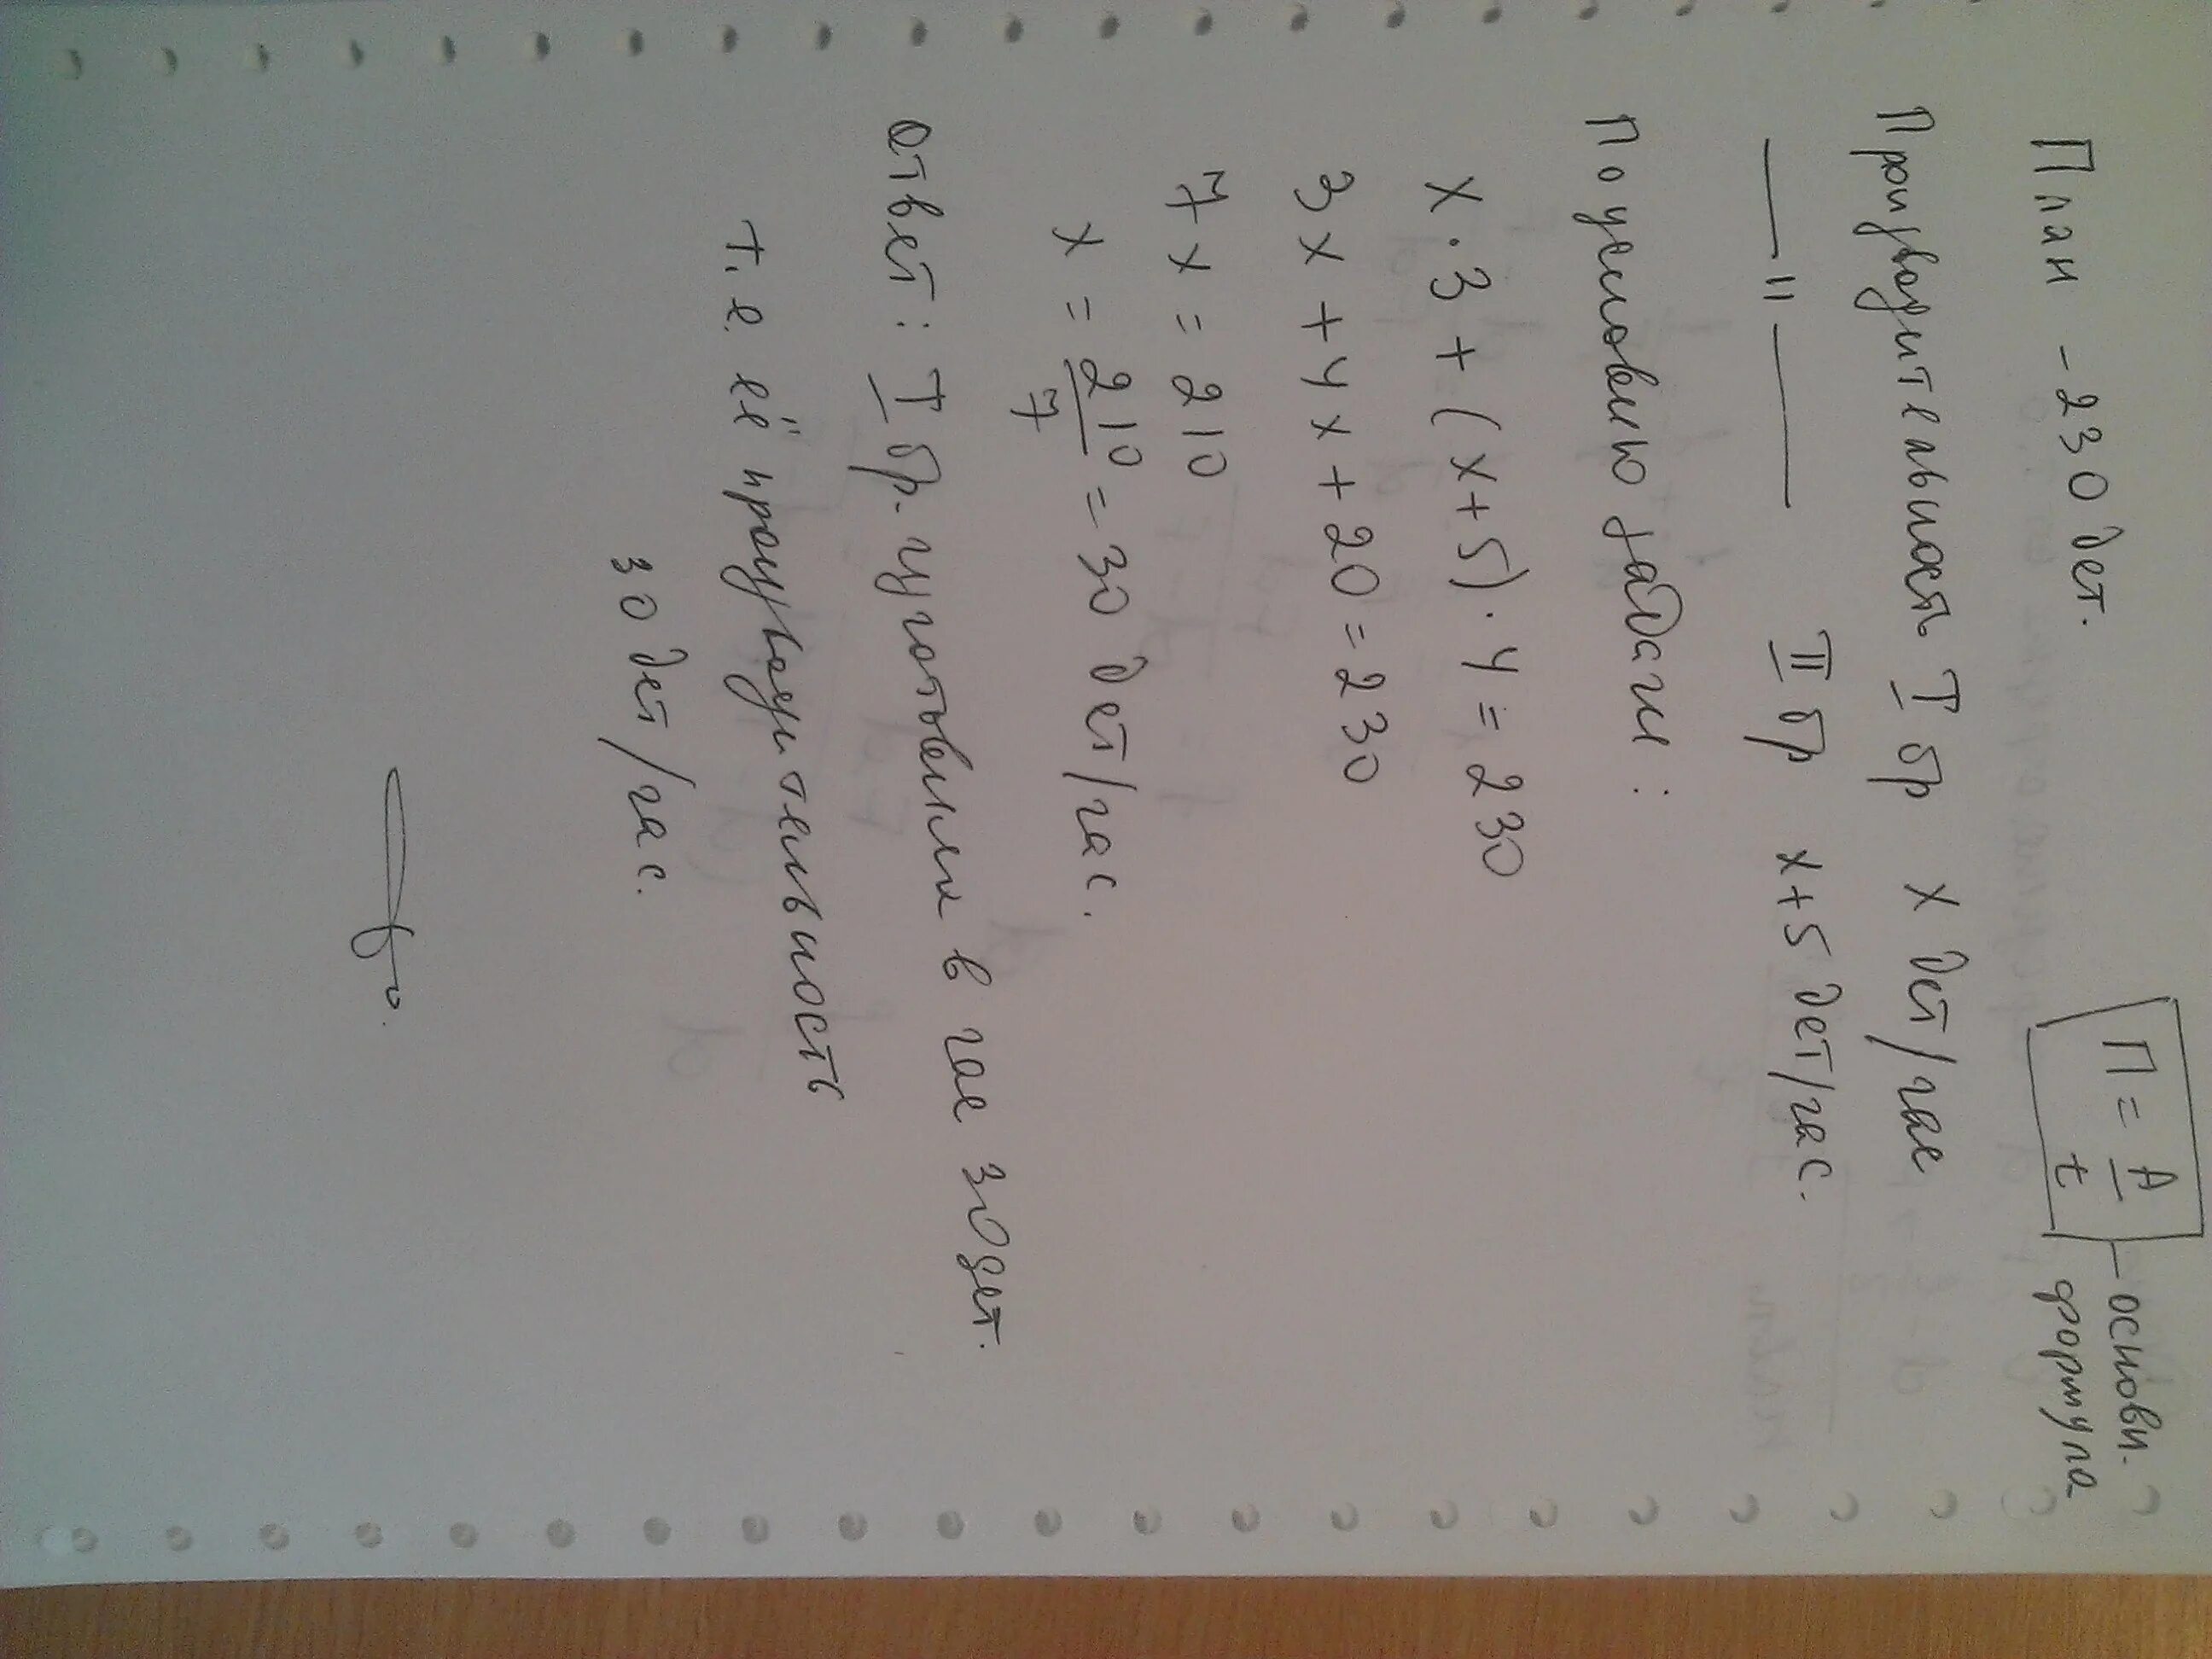 План - 230 дет.
П = A/t - основн. формула
Производительность I бр x дет/час
— " — II бр x+5 дет/час.
По условию задачи:
x·3 + (x+5)·4 = 230
3x + 4x + 20 = 230
7x = 210
x = 210/7 = 30 дет/час.
Ответ: I бр. изготовила в час 30 дет.
т.е. её производительность
30 дет/час.